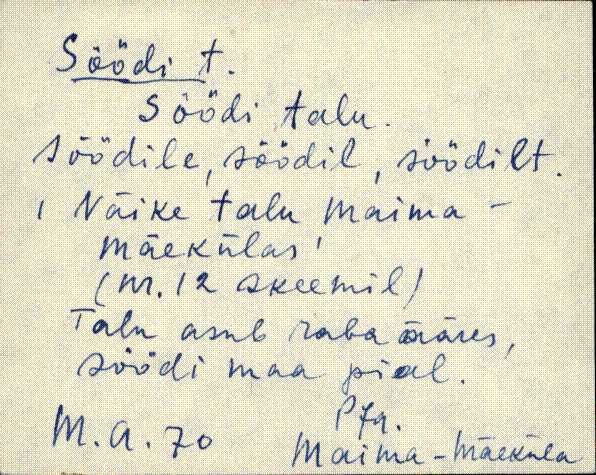 Söödi t.
Söödi talu.
söödile, söödil, söödilt.
' Näike talu Maima-
Mäekülas '
(nr. 12 skeemil)
Talu asub raba ääres,
söödi maa pial.
M.A. 70
PJa.
Maima-Mäeküla